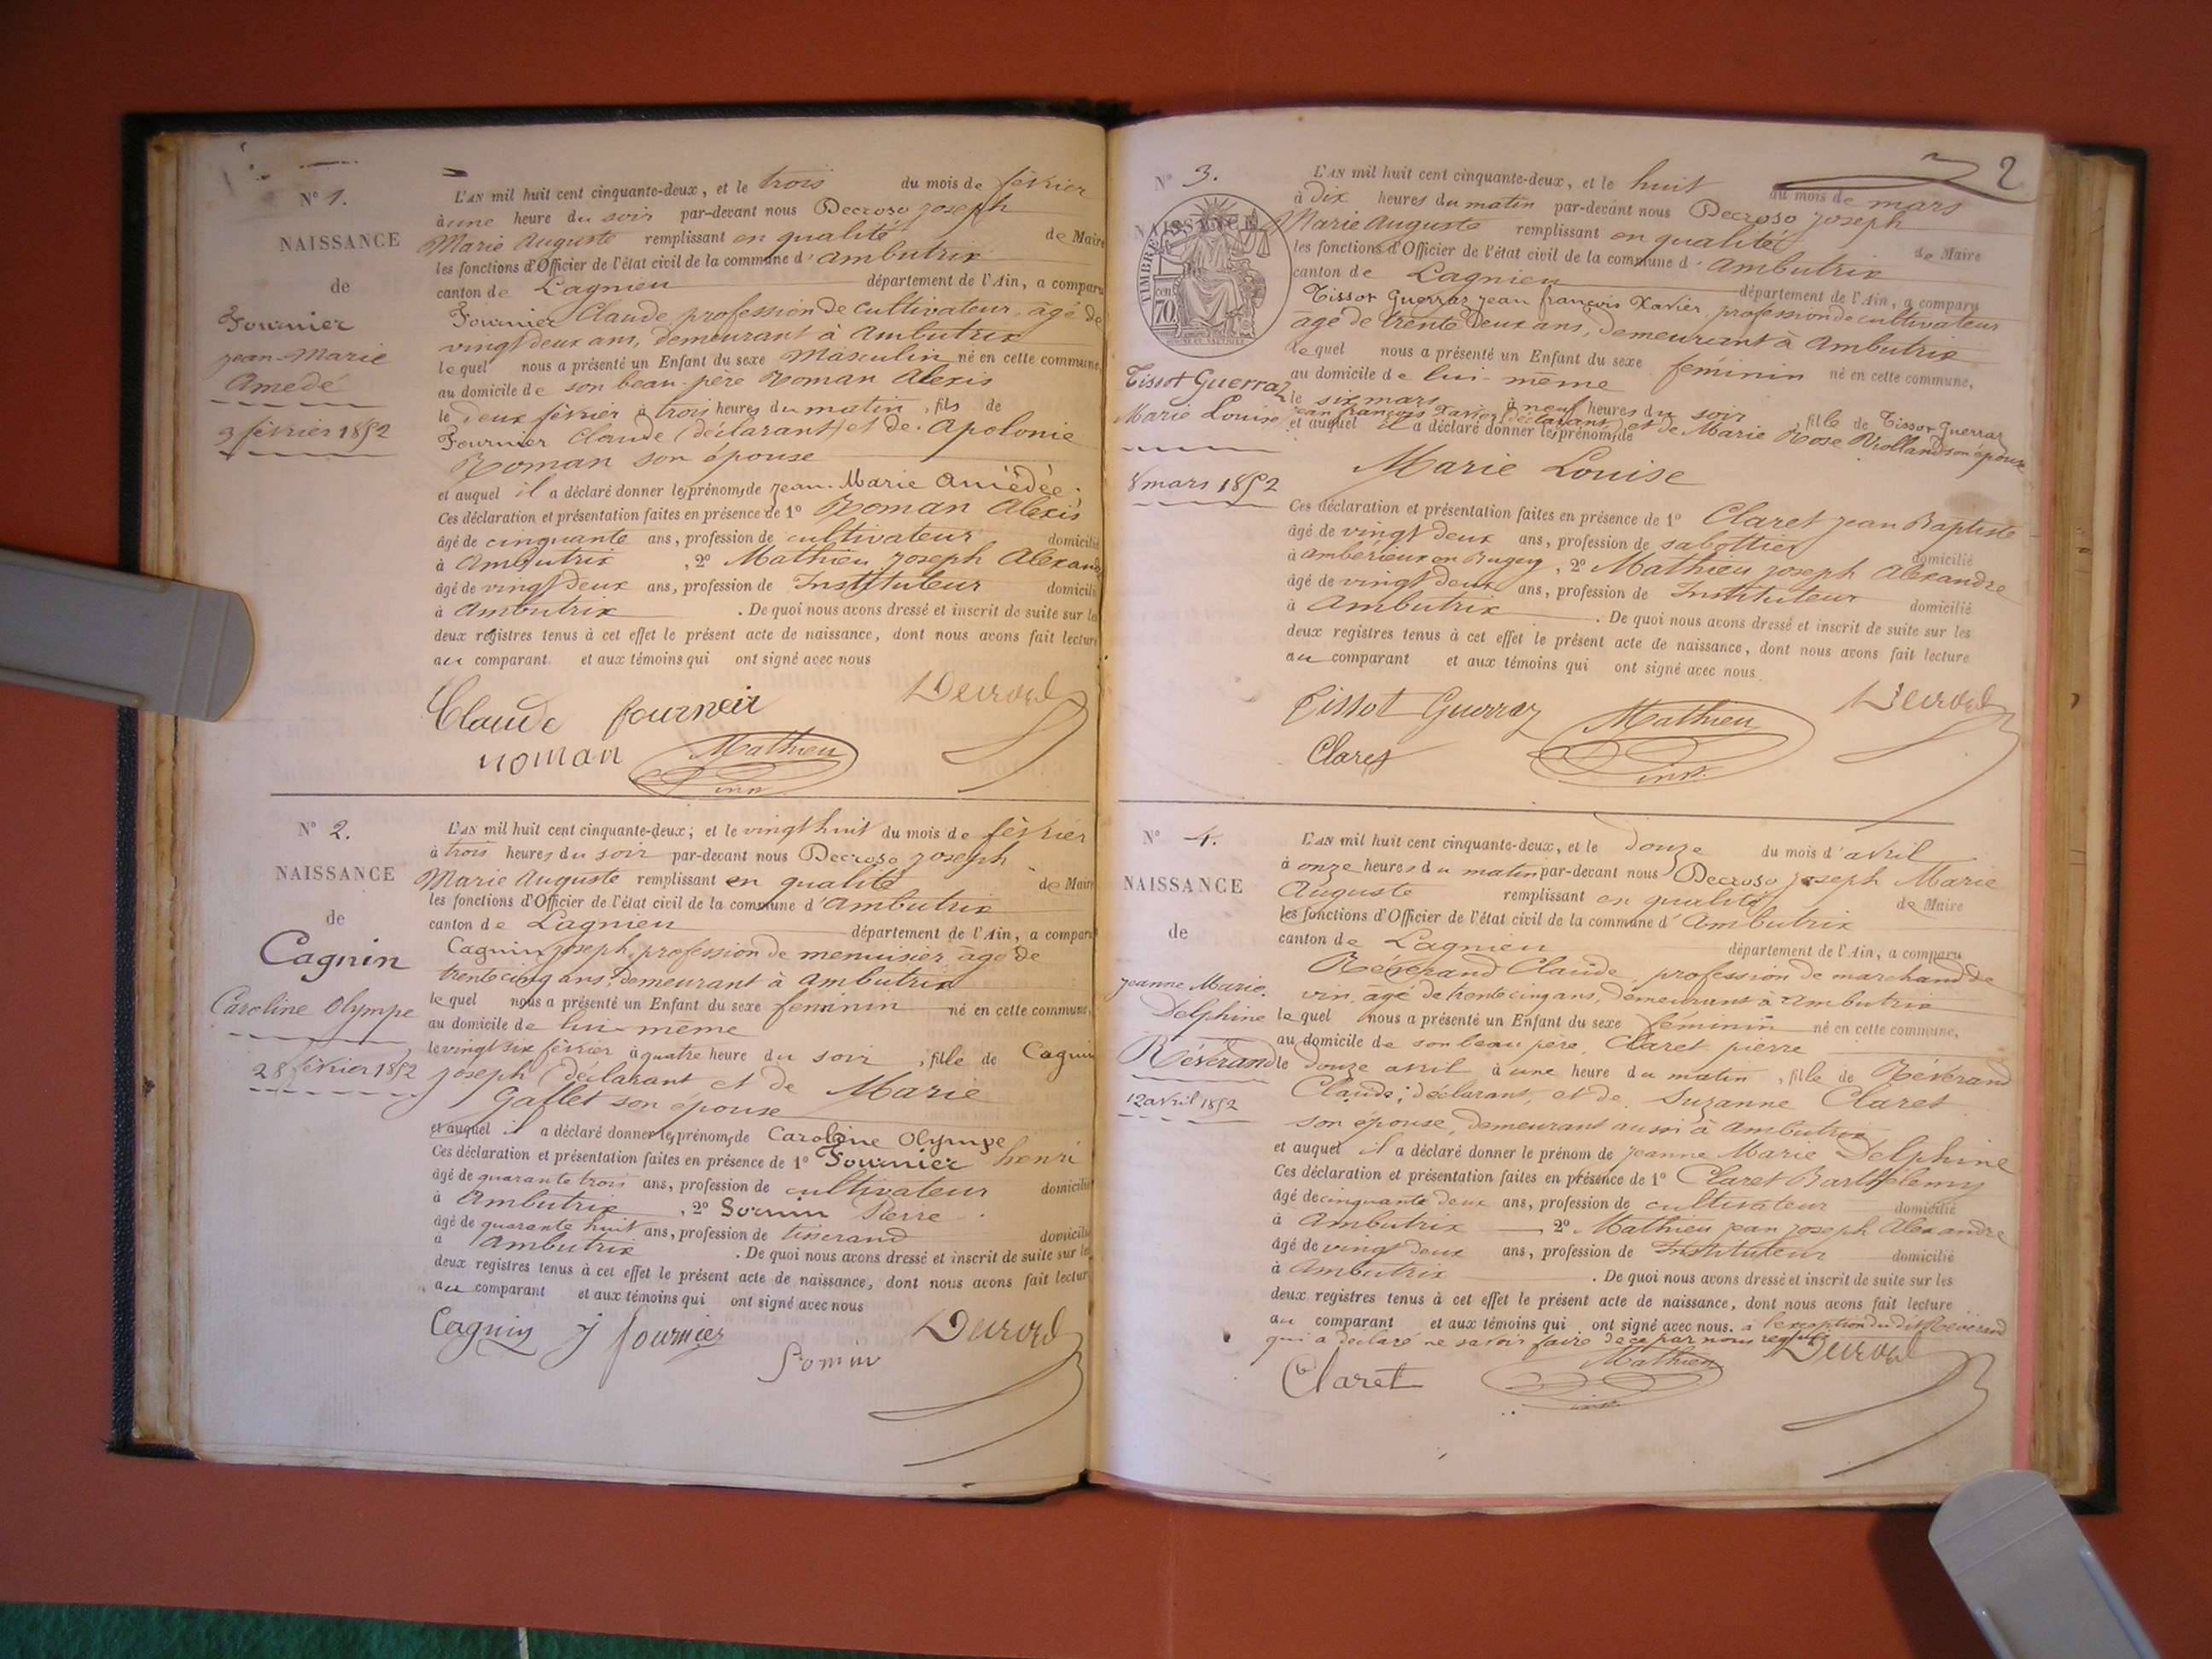 N° 1.
NAISSANCE
de
Fournier
jean-Marie
Amedé
3 février 1852
L'AN mil huit cent cinquante-deux, et le trois du mois de février
à une heure du soir par-devant nous Decroso joseph
Marie Auguste remplissant en qualité de Maire
les fonctions d'Officier de l'état civil de la commune d'Ambutrix
canton de Lagnieu département de l'Ain, a comparu
Fournier Claude profession de cultivateur, âgé de
vingt deux ans, demeurant à Ambutrix
lequel nous a présenté un Enfant du sexe Masculin né en cette commune,
au domicile de son beau-père Roman Alexis
le deux février à trois heures du matin, fils de
Fournier Claude (déclarant) et de Apolonie
Roman son épouse
et auquel il a déclaré donner les prénoms de jean-Marie Amédée.
Ces déclaration et présentation faites en présence de 1° Roman Alexis
âgé de cinquante ans, profession de cultivateur domicilié
à Ambutrix, 2° Mathieu joseph Alexand
âgé de vingt deux ans, profession de Instituteur domicilié
à Ambutrix. De quoi nous avons dressé et inscrit de suite sur les
deux registres tenus à cet effet le présent acte de naissance, dont nous avons fait lecture
au comparant et aux témoins qui ont signé avec nous
Claude fourneir
roman Mathieu
N° 2.
NAISSANCE
de
Cagnin
Caroline Olympe
28 février 1852
L'AN mil huit cent cinquante-deux; et le vingt huit du mois de février
à trois heures du soir par-devant nous Decroso joseph
Marie Auguste remplissant en qualité de Maire
les fonctions d'Officier de l'état civil de la commune d'Ambutrix
canton de Lagnieu département de l'Ain, a comparu
Cagnin joseph, profession de menuisier âgé de
trente cinq ans, demeurant à Ambutrix
lequel nous a présenté un Enfant du sexe feminin né en cette commune,
au domicile de lui-même
le vingt six février à quatre heure du soir, fille de Cagnin
joseph (déclarant et de Marie
Gallet son épouse
et auquel il a déclaré donner les prénoms de Caroline Olympe
Ces déclaration et présentation faites en présence de 1° Fournier henri
âgé de quarante trois ans, profession de cultivateur domicilié
à Ambutrix, 2° Sornin Pierre
âgé de quarante huit ans, profession de tisserand domicilié
à Ambutrix. De quoi nous avons dressé et inscrit de suite sur les
deux registres tenus à cet effet le présent acte de naissance, dont nous avons fait lecture
au comparant et aux témoins qui ont signé avec nous
Cagnin j fournier
2
N° 3.
NAISSANCE
TIMBRE
70
Tissot Guerraz
Marie Louise
8 mars 1852
L'AN mil huit cent cinquante-deux, et le huit du mois de mars
à dix heures du matin par-devant nous Decroso joseph
Marie Auguste remplissant en qualité de Maire
les fonctions d'Officier de l'état civil de la commune d'Ambutrix
canton de Lagnieu département de l'Ain, a comparu
Tissot Guerraz jean françois Xavier, profession de cultivateur
âgé de trente deux ans, demeurant à Ambutrix
lequel nous a présenté un Enfant du sexe féminin né en cette commune,
au domicile de lui-même
le six mars à neuf heures du soir, fille de Tissot Guerraz
jean françois Xavier déclarant et de Marie Rose Viollandson épouse
et auquel il a déclaré donner les prénoms de
Marie Louise
Ces déclaration et présentation faites en présence de 1° Claret jean Baptiste
âgé de vingt deux ans, profession de sabottier domicilié
à Ambérieux en Bugey, 2° Mathieu joseph Alexandre
âgé de vingt deux ans, profession de Instituteur domicilié
à Ambutrix. De quoi nous avons dressé et inscrit de suite sur les
deux registres tenus à cet effet le présent acte de naissance, dont nous avons fait lecture
au comparant et aux témoins qui ont signé avec nous
Tissot Guerraz Mathieu
Claret
N° 4.
NAISSANCE
de
jeanne Marie
Delphine
Révérand
12 avril 1852
L'AN mil huit cent cinquante-deux, et le douze du mois d'avril
à onze heures du matin par-devant nous Decroso joseph Marie
Auguste remplissant en qualité de Maire
les fonctions d'Officier de l'état civil de la commune d'Ambutrix
canton de Lagnieu département de l'Ain, a comparu
Révérand Claude, profession de marchand de
vin, âgé de trente cinq ans, demeurant à Ambutrix
lequel nous a présenté un Enfant du sexe féminin né en cette commune,
au domicile de son beau père, Claret pierre
le douze avril à une heure du matin, fille de Révérand
Claude; déclarant, et de Suzanne Claret
son épouse, demeurant aussi à Ambutrix
et auquel il a déclaré donner le prénom de jeanne Marie Delphine
Ces déclaration et présentation faites en présence de 1° Claret Barthélemy
âgé de cinquante deux ans, profession de cultivateur domicilié
à Ambutrix 2° Mathieu jean joseph Alexandre
âgé de vingt deux ans, profession de Instituteur domicilié
à Ambutrix. De quoi nous avons dressé et inscrit de suite sur les
deux registres tenus à cet effet le présent acte de naissance, dont nous avons fait lecture
au comparant et aux témoins qui ont signé avec nous. à l'exception du dit Reverand
qui a déclaré ne savoir faire de ce par nous requis
Claret Mathieu